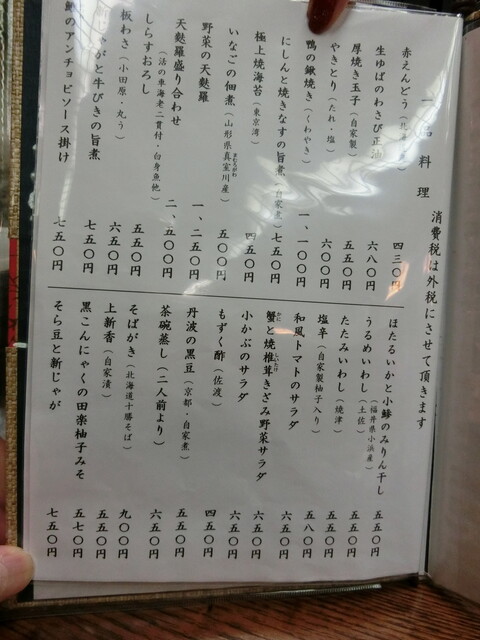 一品料理
消費税は外税にさせて頂きます
赤えんどう 四三〇円
生ゆばのわさび正油 六八〇円
厚焼き玉子（自家製） 五五〇円
やきとり（たれ・塩） 六〇〇円
鴨の鍬焼き（くわやき） 一、一〇〇円
にしんと焼きなすの旨煮（自家煮） 七五〇円
極上焼海苔（東京湾） 四五〇円
いなごの佃煮（山形県真室川産） 五〇〇円
野菜の天麩羅 一、二五〇円
天麩羅盛り合わせ（活の車海老二貫付・白身魚他） 二、五〇〇円
しらすおろし 五五〇円
板わさ（小田原・丸う） 六五〇円
がと牛びきの旨煮 七五〇円
のアンチョビソース掛け 七五〇円
ほたるいかと小鯵のみりん干し（福井県小浜産） 五五〇円
うるめいわし（土佐） 五五〇円
たたみいわし（焼津） 五五〇円
塩辛（自家製柚子入り） 五八〇円
和風トマトのサラダ 六五〇円
蟹と焼椎茸きざみ野菜サラダ 六五〇円
小かぶのサラダ 六五〇円
もずく酢（佐渡） 四五〇円
丹波の黒豆（京都・自家煮） 五五〇円
茶碗蒸し（二人前より） 六五〇円
そばがき（北海道十勝そば） 九〇〇円
上新香（自家漬） 五五〇円
黒こんにゃくの田楽柚子みそ 五七〇円
そら豆と新じゃが 七五〇円